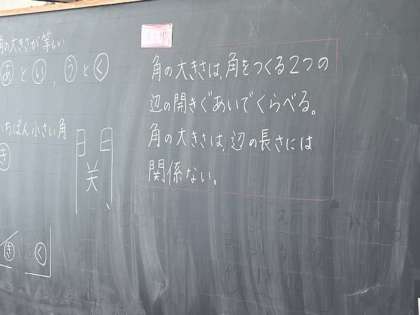 の大きさが等しい
あとい、うとく
角の大きさは、角をつくる2つの
辺の開きぐあいでくらべる。
角の大きさは、辺の長さには
関係ない。
ちばん小さい角
き
関
き く